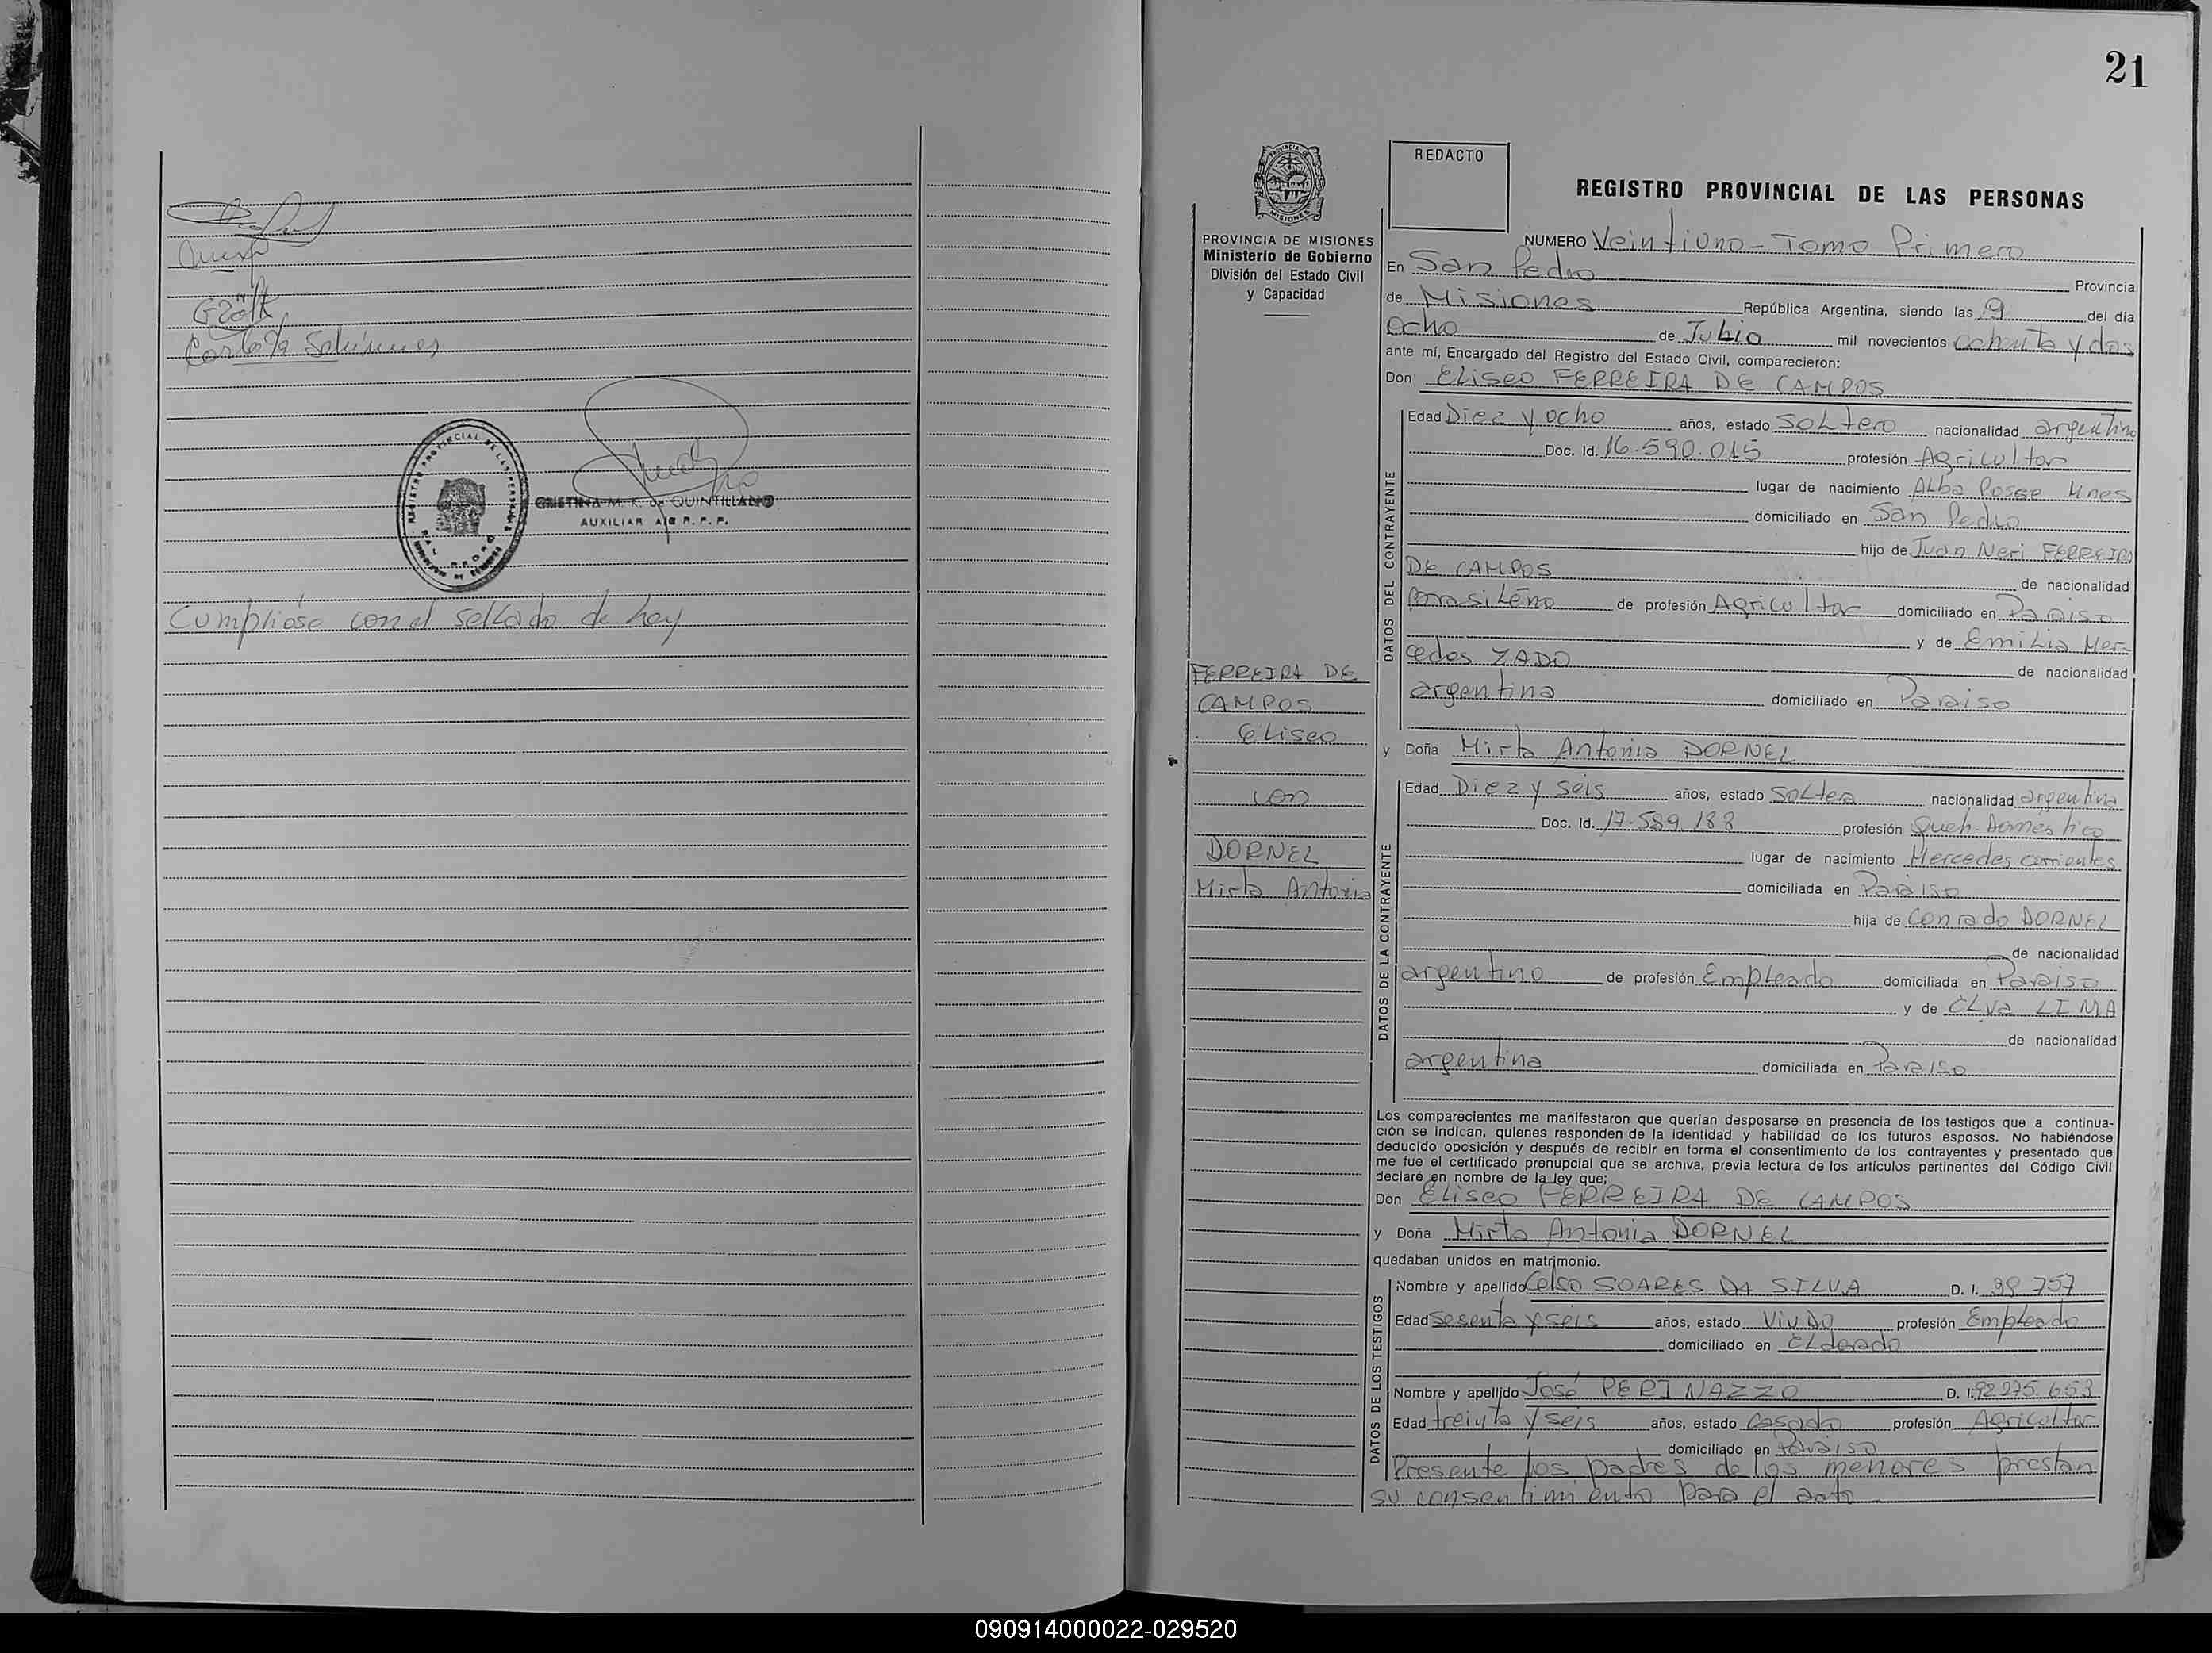 Cumplióse con el sellado de hoy
CRISTINA M. K. de QUINTILLANO
AUXILIAR A/C R.P.P.
21
REDACTO
REGISTRO PROVINCIAL DE LAS PERSONAS
PROVINCIA DE MISIONES
Ministerio de Gobierno
División del Estado Civil
y Capacidad
FERREIRA DE
CAMPOS
Eliseo
con
DORNEL
Mirta Antonia
NUMERO Veintiuno - Tomo Primero
En San Pedro Provincia
de Misiones República Argentina, siendo las 9 del día
ocho de Julio mil novecientos ochenta y dos
ante mí, Encargado del Registro del Estado Civil, comparecieron:
Don Eliseo FERREIRA DE CAMPOS
DATOS DEL CONTRAYENTE
Edad Diez y ocho años, estado soltero nacionalidad argentino
Doc. Id. 16.590.015 profesión Agricultor
lugar de nacimiento Alba Posse Mnes
domiciliado en San Pedro
hijo de Juan Neri FERREIRA
DE CAMPOS de nacionalidad
brasileño de profesión Agricultor domiciliado en Paraiso
y de Emilia Mer-
cedes ZADO de nacionalidad
argentina domiciliado en Paraiso
y Doña Mirta Antonia DORNEL
DATOS DE LA CONTRAYENTE
Edad Diez y seis años, estado soltera nacionalidad argentina
Doc. Id. 17.589.188 profesión Queh-Domestico
lugar de nacimiento Mercedes corrientes
domiciliada en Paraiso
hija de Conrado DORNEL
de nacionalidad
argentino de profesión Empleado domiciliada en Paraiso
y de Elva LIMA
de nacionalidad
argentina domiciliada en Paraiso
Los comparecientes me manifestaron que querían desposarse en presencia de los testigos que a continua-
ción se indican, quienes responden de la identidad y habilidad de los futuros esposos. No habiéndose
deducido oposición y después de recibir en forma el consentimiento de los contrayentes y presentado que
me fue el certificado prenupcial que se archiva, previa lectura de los artículos pertinentes del Código Civil
declaré en nombre de la ley que:
Don Eliseo FERREIRA DE CAMPOS
y Doña Mirta Antonia DORNEL
quedaban unidos en matrimonio.
DATOS DE LOS TESTIGOS
Nombre y apellido Celso SOARES DA SILVA D. I. 39 757
Edad sesenta y seis años, estado Viudo profesión Empleado
domiciliado en Eldorado
Nombre y apellido José PERINAZZO D. I. 92.275.653
Edad treinta y seis años, estado casado profesión Agricultor
domiciliado en Paraiso
Presente los padres de los menores prestan
su consentimiento para el acto
090914000022-029520